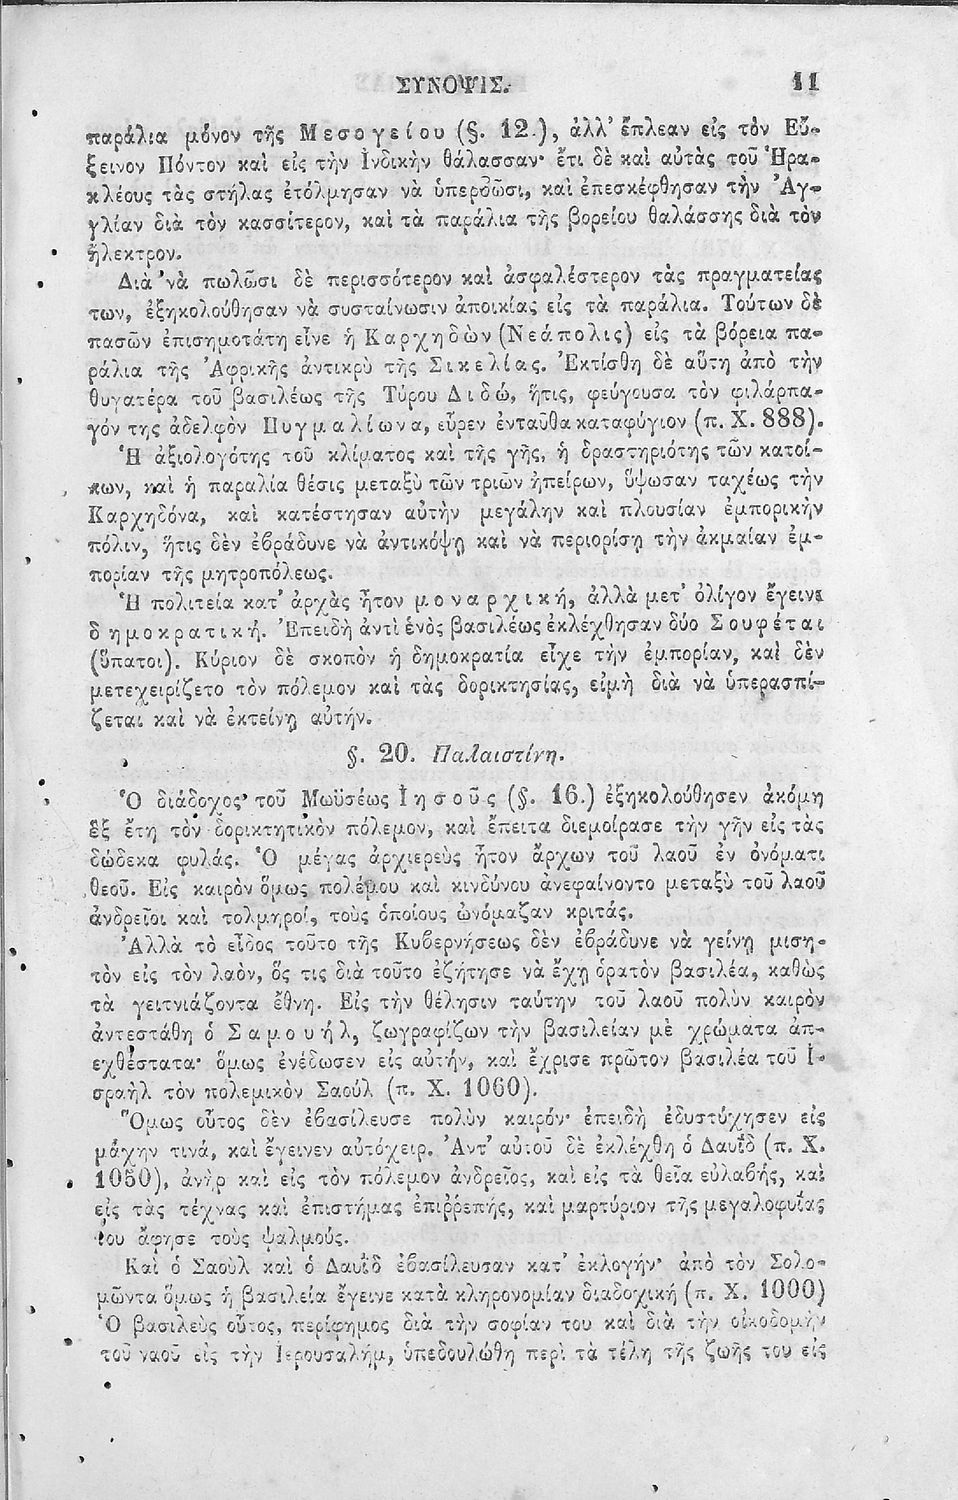 ΣΥΝΟΨΙΣ. 11
παράλια μόνον τῆς Μεσογείου (§. 12.), ἀλλ’ ἔπλεαν εἰς τὸν Εὔ-
ξεινον Πόντον καὶ εἰς τὴν Ἰνδικὴν θάλασσαν· ἔτι δὲ καὶ αὐτὰς τοῦ Ἡρα-
κλέους τὰς στήλας ἐτόλμησαν νὰ ὑπερβῶσι, καὶ ἐπεσκέφθησαν τὴν Ἀγ-
γλίαν διὰ τὸν κασσίτερον, καὶ τὰ παράλια τῆς βορείου θαλάσσης διὰ τὸν
ἤλεκτρον.
Διὰ νὰ πωλῶσι δὲ περισσότερον καὶ ἀσφαλέστερον τὰς πραγματείας
των, ἐξηκολούθησαν νὰ συσταίνωσιν ἀποικίας εἰς τὰ παράλια. Τούτων δὲ
πασῶν ἐπισημοτάτη εἶνε ἡ Καρχηδὼν (Νεάπολις) εἰς τὰ βόρεια πα-
ράλια τῆς Ἀφρικῆς ἀντικρὺ τῆς Σικελίας. Ἐκτίσθη δὲ αὕτη ἀπὸ τὴν
θυγατέρα τοῦ βασιλέως τῆς Τύρου Διδώ, ἥτις, φεύγουσα τὸν φιλάρπα-
γόν της ἀδελφὸν Πυγμαλίωνα, εὗρεν ἐνταῦθα καταφύγιον (π. Χ. 888).
Ἡ ἀξιολογότης τοῦ κλίματος καὶ τῆς γῆς, ἡ δραστηριότης τῶν κατοί-
κων, καὶ ἡ παραλία θέσις μεταξὺ τῶν τριῶν ἠπείρων, ὕψωσαν ταχέως τὴν
Καρχηδόνα, καὶ κατέστησαν αὐτὴν μεγάλην καὶ πλουσίαν ἐμπορικὴν
πόλιν, ἥτις δὲν ἐβράδυνε νὰ ἀντικόψῃ καὶ νὰ περιορίσῃ τὴν ἀκμαίαν ἐμ-
πορίαν τῆς μητροπόλεως.
Ἡ πολιτεία κατ’ ἀρχὰς ἦτον μοναρχική, ἀλλὰ μετ’ ὀλίγον ἔγεινε
δημοκρατική. Ἐπειδὴ ἀντὶ ἑνὸς βασιλέως ἐκλέχθησαν δύο Σουφέται
(ὕπατοι). Κύριον δὲ σκοπὸν ἡ δημοκρατία εἶχε τὴν ἐμπορίαν, καὶ δὲν
μετεχειρίζετο τὸν πόλεμον καὶ τὰς δορικτησίας, εἰμὴ διὰ νὰ ὑπερασπί-
ζεται καὶ νὰ ἐκτείνῃ αὐτήν.
§. 20. Παλαιστίνη.
Ὁ διάδοχος τοῦ Μωϋσέως Ἰησοῦς (§. 16.) ἐξηκολούθησεν ἀκόμη
ἓξ ἔτη τὸν δορικτητικὸν πόλεμον, καὶ ἔπειτα διεμοίρασε τὴν γῆν εἰς τὰς
δώδεκα φυλάς. Ὁ μέγας ἀρχιερεὺς ἦτον ἄρχων τοῦ λαοῦ ἐν ὀνόματι
θεοῦ. Εἰς καιρὸν ὅμως πολέμου καὶ κινδύνου ἀνεφαίνοντο μεταξὺ τοῦ λαοῦ
ἀνδρεῖοι καὶ τολμηροί, τοὺς ὁποίους ὠνόμαζαν κριτάς.
Ἀλλὰ τὸ εἶδος τοῦτο τῆς Κυβερνήσεως δὲν ἐβράδυνε νὰ γείνῃ μιση-
τὸν εἰς τὸν λαόν, ὅς τις διὰ τοῦτο ἐζήτησε νὰ ἔχῃ ὁρατὸν βασιλέα, καθὼς
τὰ γειτνιάζοντα ἔθνη. Εἰς τὴν θέλησιν ταύτην τοῦ λαοῦ πολὺν καιρὸν
ἀντεστάθη ὁ Σαμουήλ, ζωγραφίζων τὴν βασιλείαν μὲ χρώματα ἀπ-
εχθέστατα· ὅμως ἐνέδωσεν εἰς αὐτήν, καὶ ἔχρισε πρῶτον βασιλέα τοῦ Ἰ-
σραὴλ τὸν πολεμικὸν Σαούλ (π. Χ. 1060).
Ὅμως οὗτος δὲν ἐβασίλευσε πολὺν καιρόν· ἐπειδὴ ἐδυστύχησεν εἰς
μάχην τινά, καὶ ἔγεινεν αὐτόχειρ. Ἀντ’ αὐτοῦ δὲ ἐκλέχθη ὁ Δαυῒδ (π. Χ.
1050), ἀνὴρ καὶ εἰς τὸν πόλεμον ἀνδρεῖος, καὶ εἰς τὰ θεῖα εὐλαβής, καὶ
εἰς τὰς τέχνας καὶ ἐπιστήμας ἐπιῤῥεπής, καὶ μαρτύριον τῆς μεγαλοφυΐας
του ἄφησε τοὺς ψαλμούς.
Καὶ ὁ Σαοὺλ καὶ ὁ Δαυῒδ ἐβασίλευσαν κατ’ ἐκλογήν· ἀπὸ τὸν Σολο-
μῶντα ὅμως ἡ βασιλεία ἔγεινε κατὰ κληρονομίαν διαδοχική (π. Χ. 1000)
Ὁ βασιλεὺς οὗτος, περίφημος διὰ τὴν σοφίαν του καὶ διὰ τὴν οἰκοδομὴν
τοῦ ναοῦ εἰς τὴν Ἱερουσαλήμ, ὑπεδουλώθη περὶ τὰ τέλη τῆς ζωῆς του εἰς